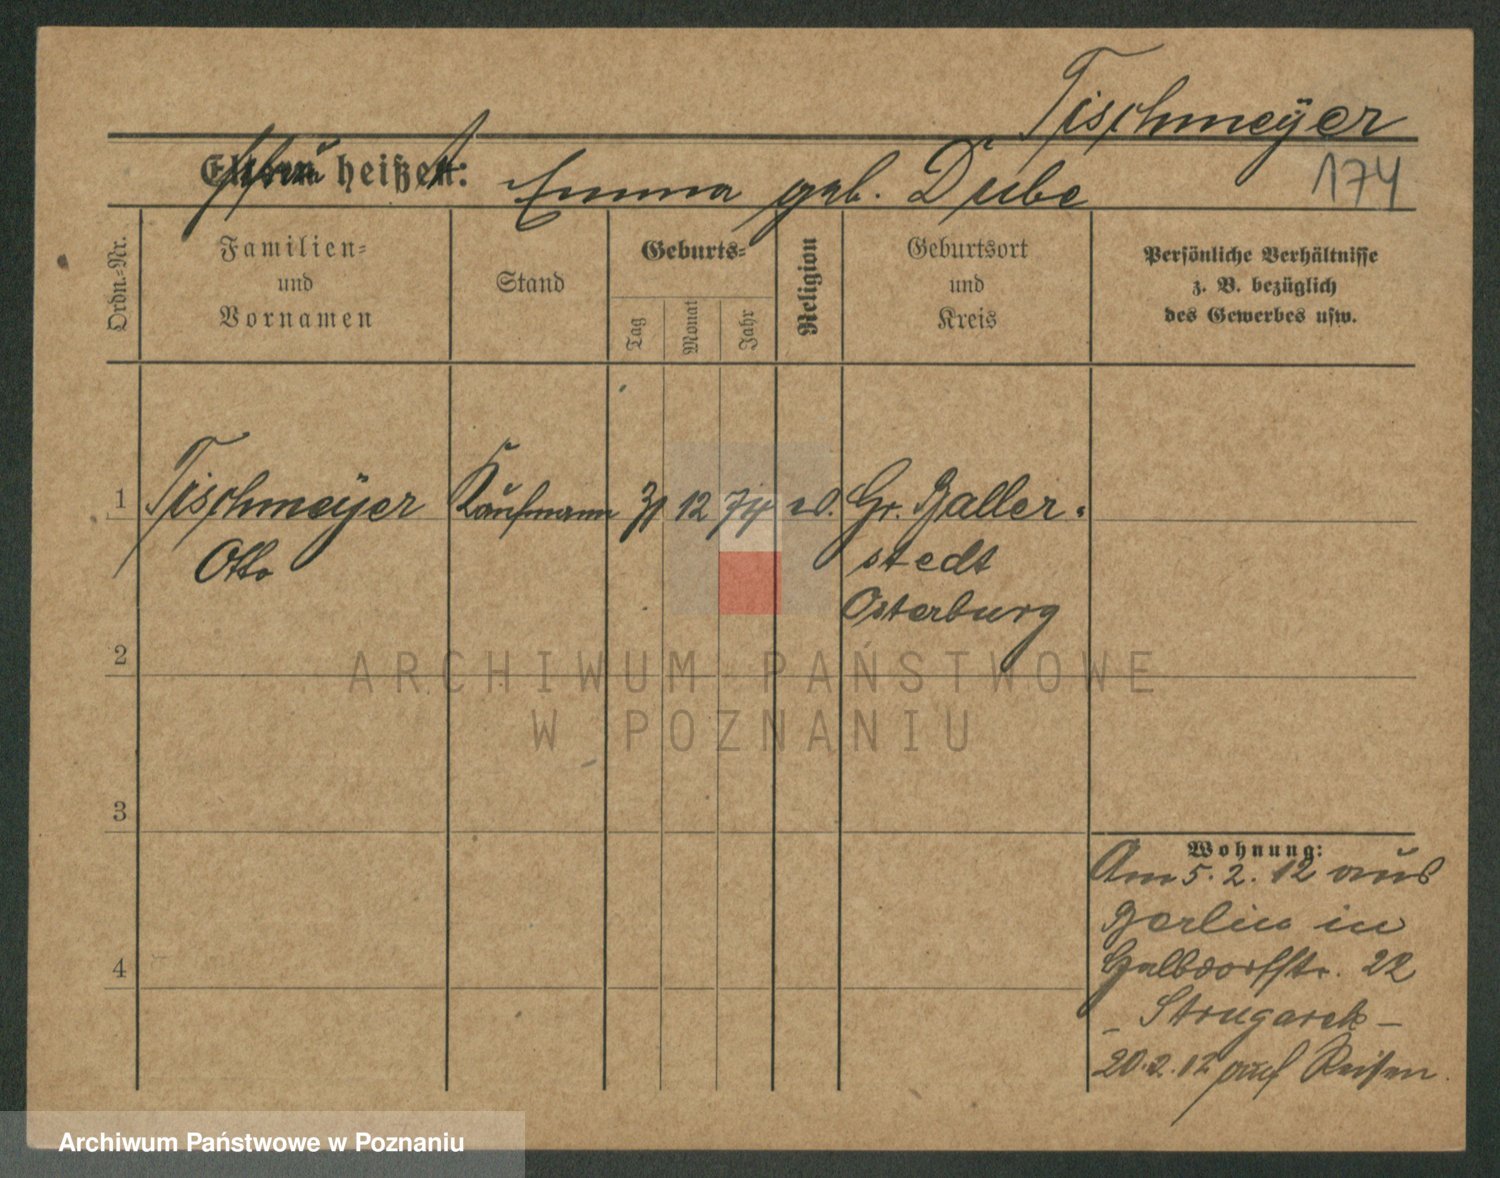 Tischmeÿer
174
Eltern heißen: Emma geb. Dube
Ordn.-Nr.
Familien-
und
Vornamen
Stand
Geburts-
Tag
Monat
Jahr
Religion
Geburtsort
und
Kreis
Persönliche Verhältnisse
z. B. bezüglich
des Gewerbes usw.
1 Tischmeÿer Kaufmann 31 12 74 ev. Gr. Baller-
Otto stedt
Osterburg
2
3
4
Wohnung:
Am 5. 2. 12 aus
Berlin in
Halbdorfstr. 22
– Strugarek –
20.2.12 auf Reisen.
ARCHIWUM PAŃSTWOWE
W POZNANIU
Archiwum Państwowe w Poznaniu